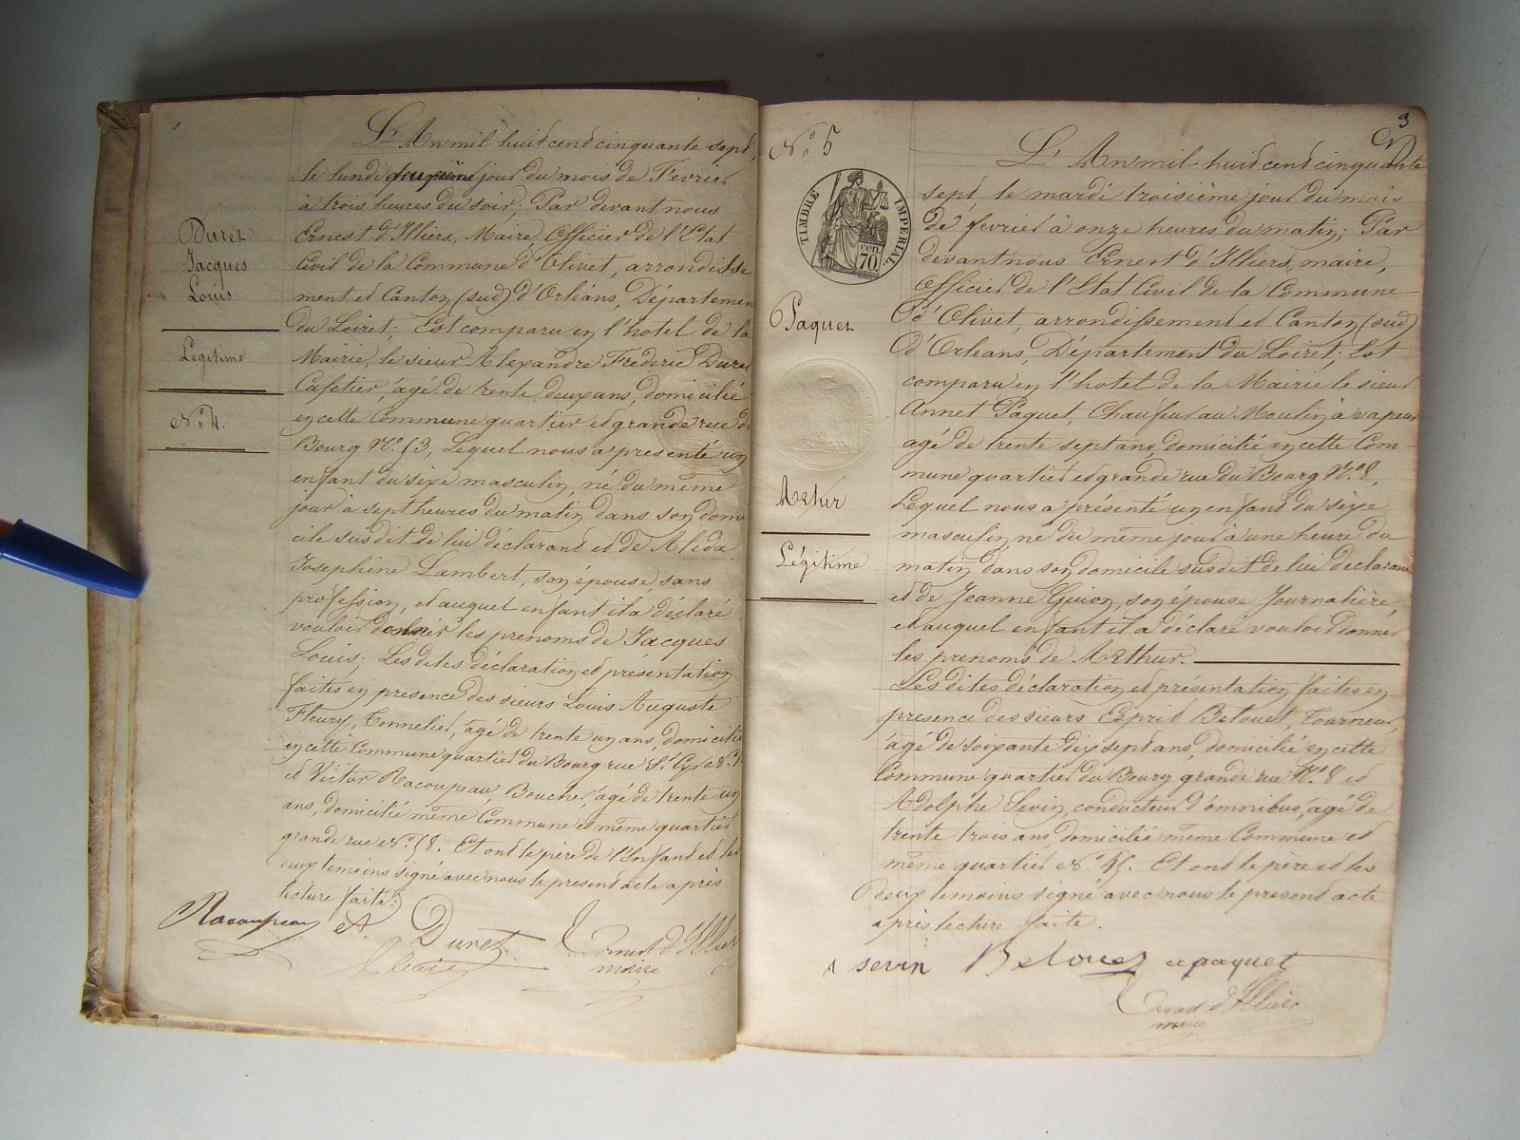 L'An mil huit cent cinquante sept,
le lundi jour du mois de Fevrier
à trois heures du soir; Par devant nous
Ernest d'Illiers, Maire, Officier de l'Etat
Civil de la Commune d'Olivet, arrondisse
ment et Canton (sud) d'Orléans, Départemen
du Loiret; Est comparu en l'hotel de la
Mairie, le sieur Alexandre Frederic Duret
Cafetier, agé de trente deux ans, domicilié
en cette Commune quartier et grande rue du
Bourg No. 13, Lequel nous a presenté un
enfant du sexe masculin, né du même
jour à sept heures du matin dans son domi
cile susdit de lui déclarant et de Alida
Josephine Lambert, son épouse, sans
profession, et auquel enfant il a déclaré
vouloir donner les prenoms de Jacques
Louis; Les dites déclaration et presentation
faites en presence des sieurs Louis Auguste
Fleury, Tonnelier, agé de trente un ans, domicilié
en cette Commune quartier du Bourg rue St.
et Victor Racoupeau, Boucher, agé de trente un
ans, domicilié même Commune et même quartier
grande rue No. 18. Et ont le père de l'Enfant et les
deux temoins signé avec nous le present acte après
lecture faite.
Duret
Jacques
Louis
Légitime
No. 4.
Racoupeau
A. Duret
Fleury
Ernest d'Illiers
maire
3
No. 5
TIMBRE IMPERIAL
70
Paquet
Artur
Légitime
L'An mil huit cent cinquante
sept, le mardi troisième jour du mois
de fevrier à onze heures du matin; Par
devant nous Ernest d'Illiers, maire,
Officier de l'Etat Civil de la Commune
d'Olivet, arrondissement et Canton (sud)
d'Orleans, Département du Loiret; Est
comparu en l'hotel de la Mairie le sieur
Annet Paquet, Chaufeur au Moulin à vapeur
agé de trente sept ans, domicilié en cette Com
mune quartier et grande rue du Bourg No. 8,
Lequel nous a présenté un enfant du sexe
masculin, né du même jour à une heure du
matin dans son domicile susdit de lui declarant
et de Jeanne Guion, son epouse Journalière,
et auquel enfant il a déclaré vouloir donner
les prenoms de Arthur.
Les dites déclaration et présentation faites en
presence des sieurs Esprit Betouet, Tourneur,
agé de soixante dix sept ans, domicilié en cette
Commune quartier du Bourg grande rue No. 8 et
Adolphe Sevin, conducteur d'omnibus, agé de
trente trois ans, domicilié même Commune et
même quartier No. 45. Et ont le père et les
deux temoins signé avec nous le present acte
après lecture faite.
A sevin Betouez a paquet
Ernest d'Illiers
maire